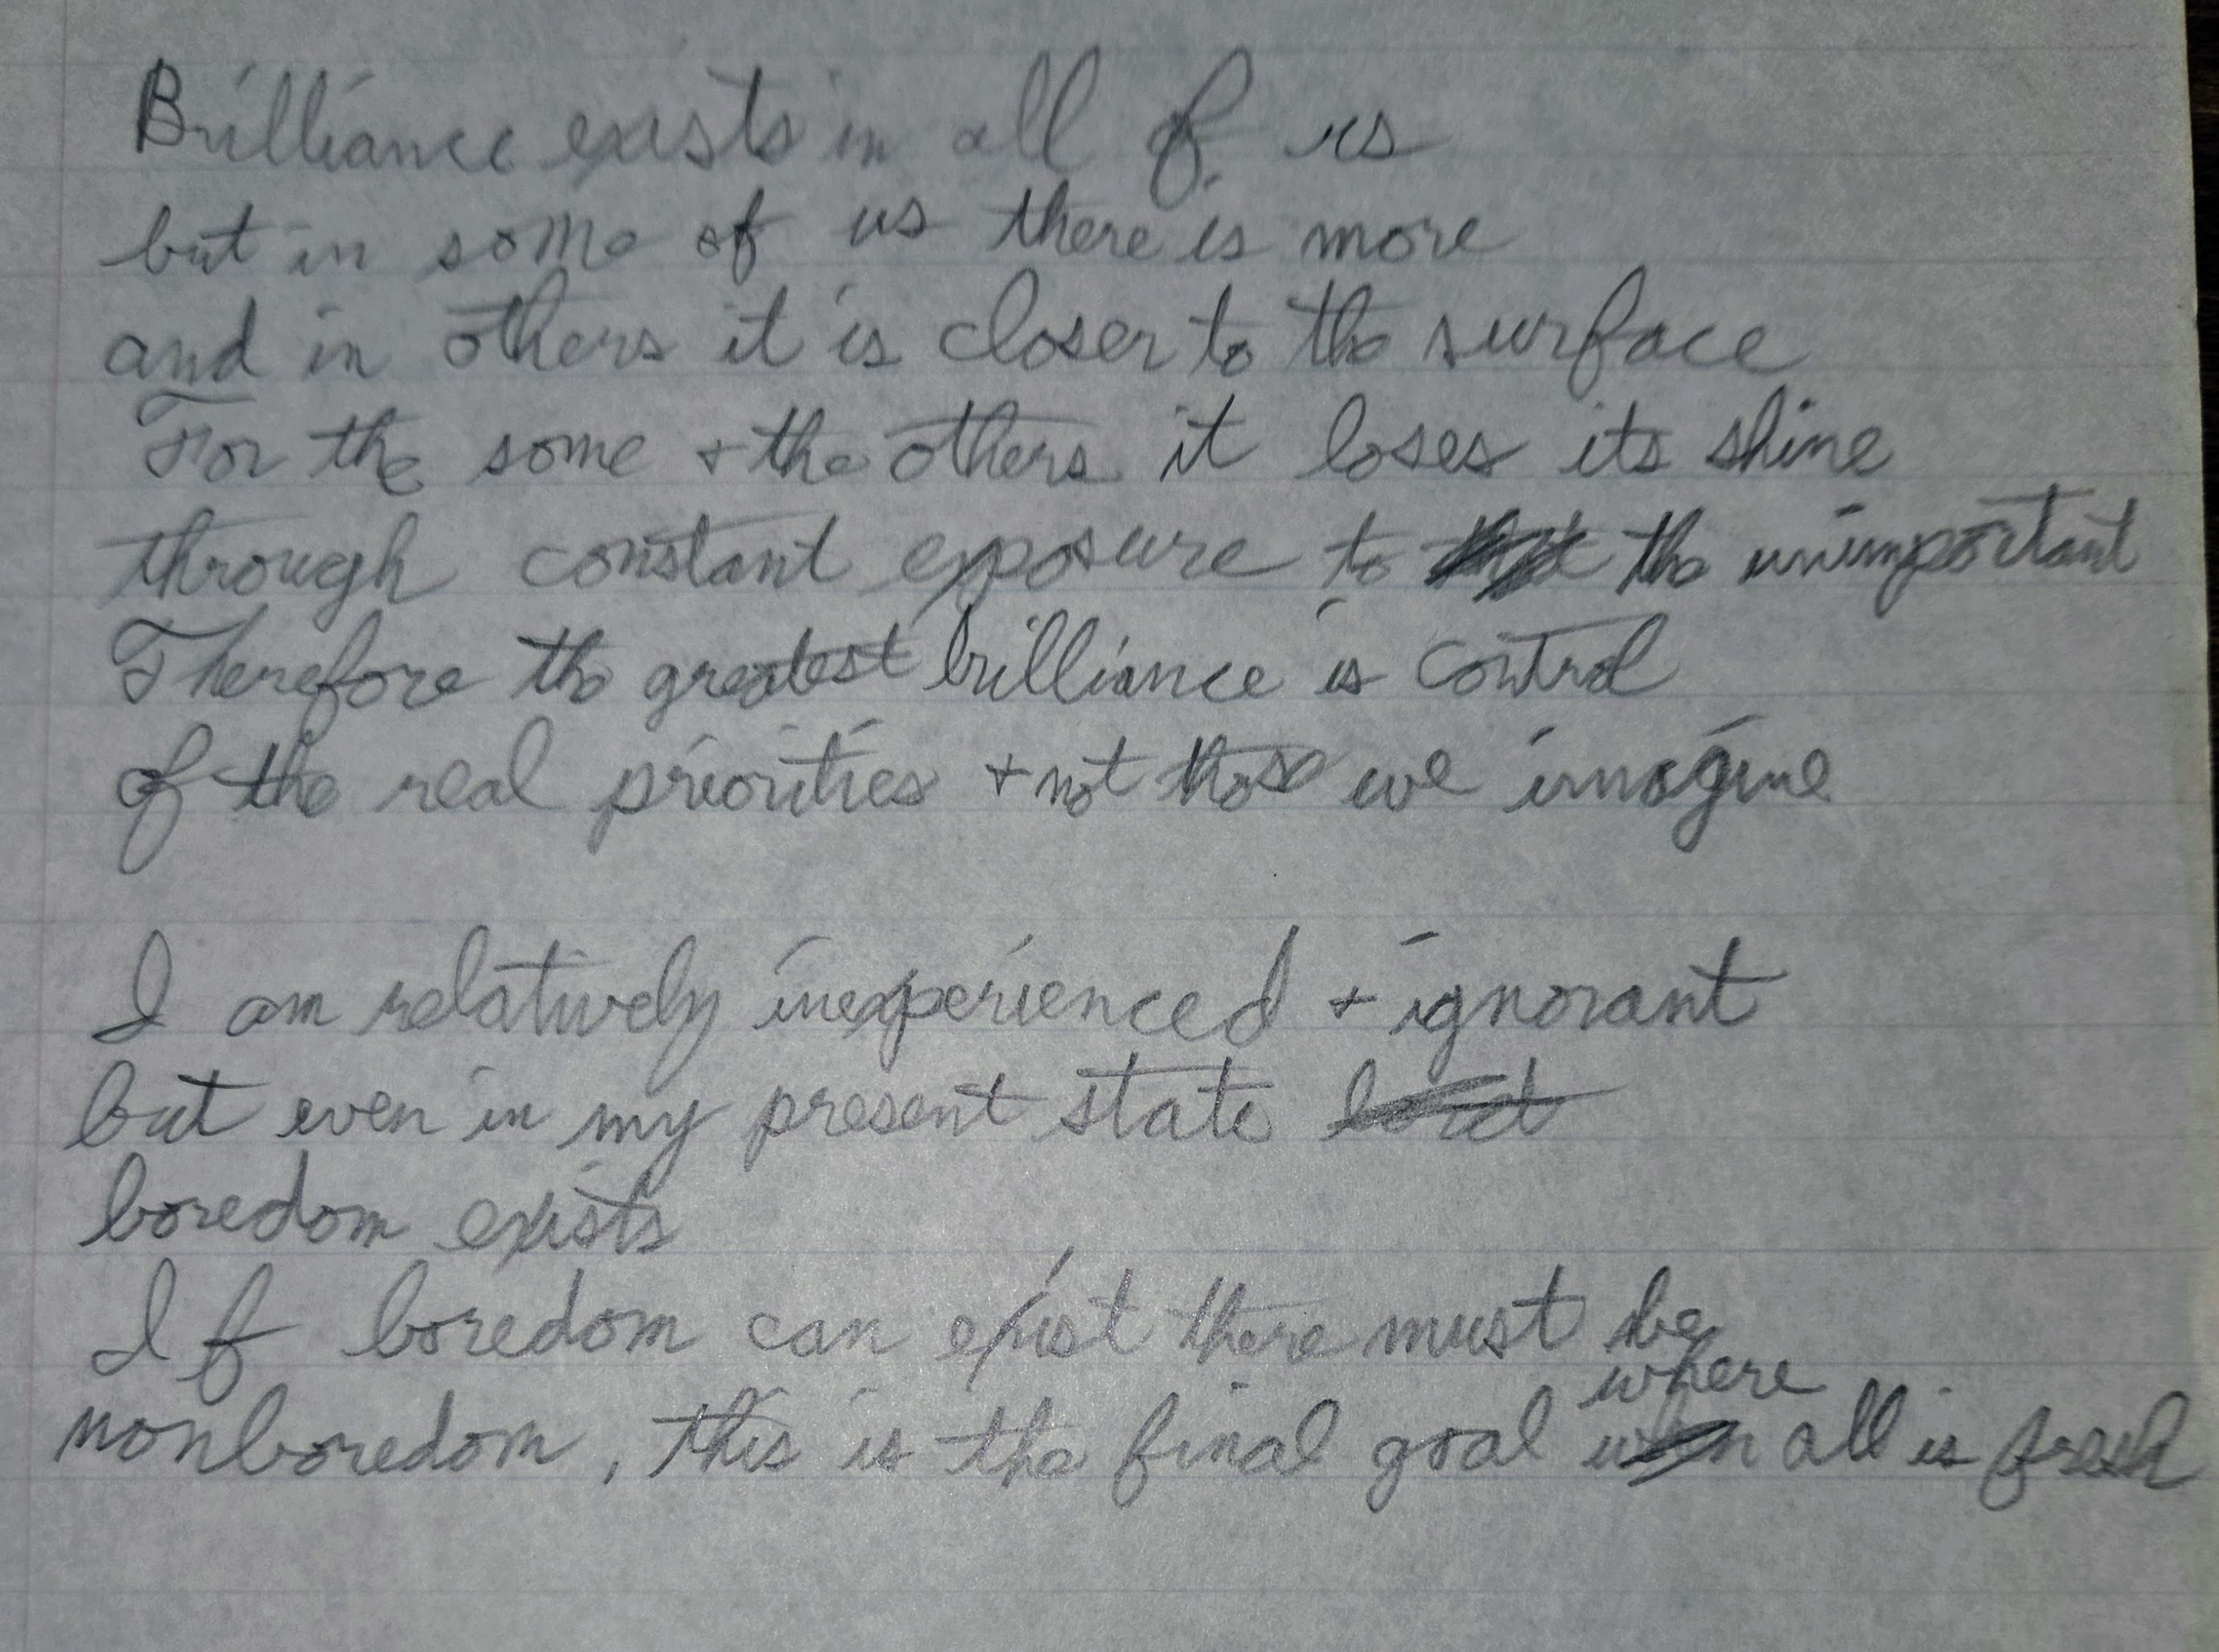 Brilliance exists in all of us
but in some of us there is more
and in others it is closer to the surface
For the some + the others it loses its shine
through constant exposure to the unimportant
Therefore the greatest brilliance is control
of the real priorities + not those we imagine
I am relatively inexperienced + ignorant
but even in my present state
boredom exists
If boredom can exist there must be
where
nonboredom, this is the final goal all is fresh